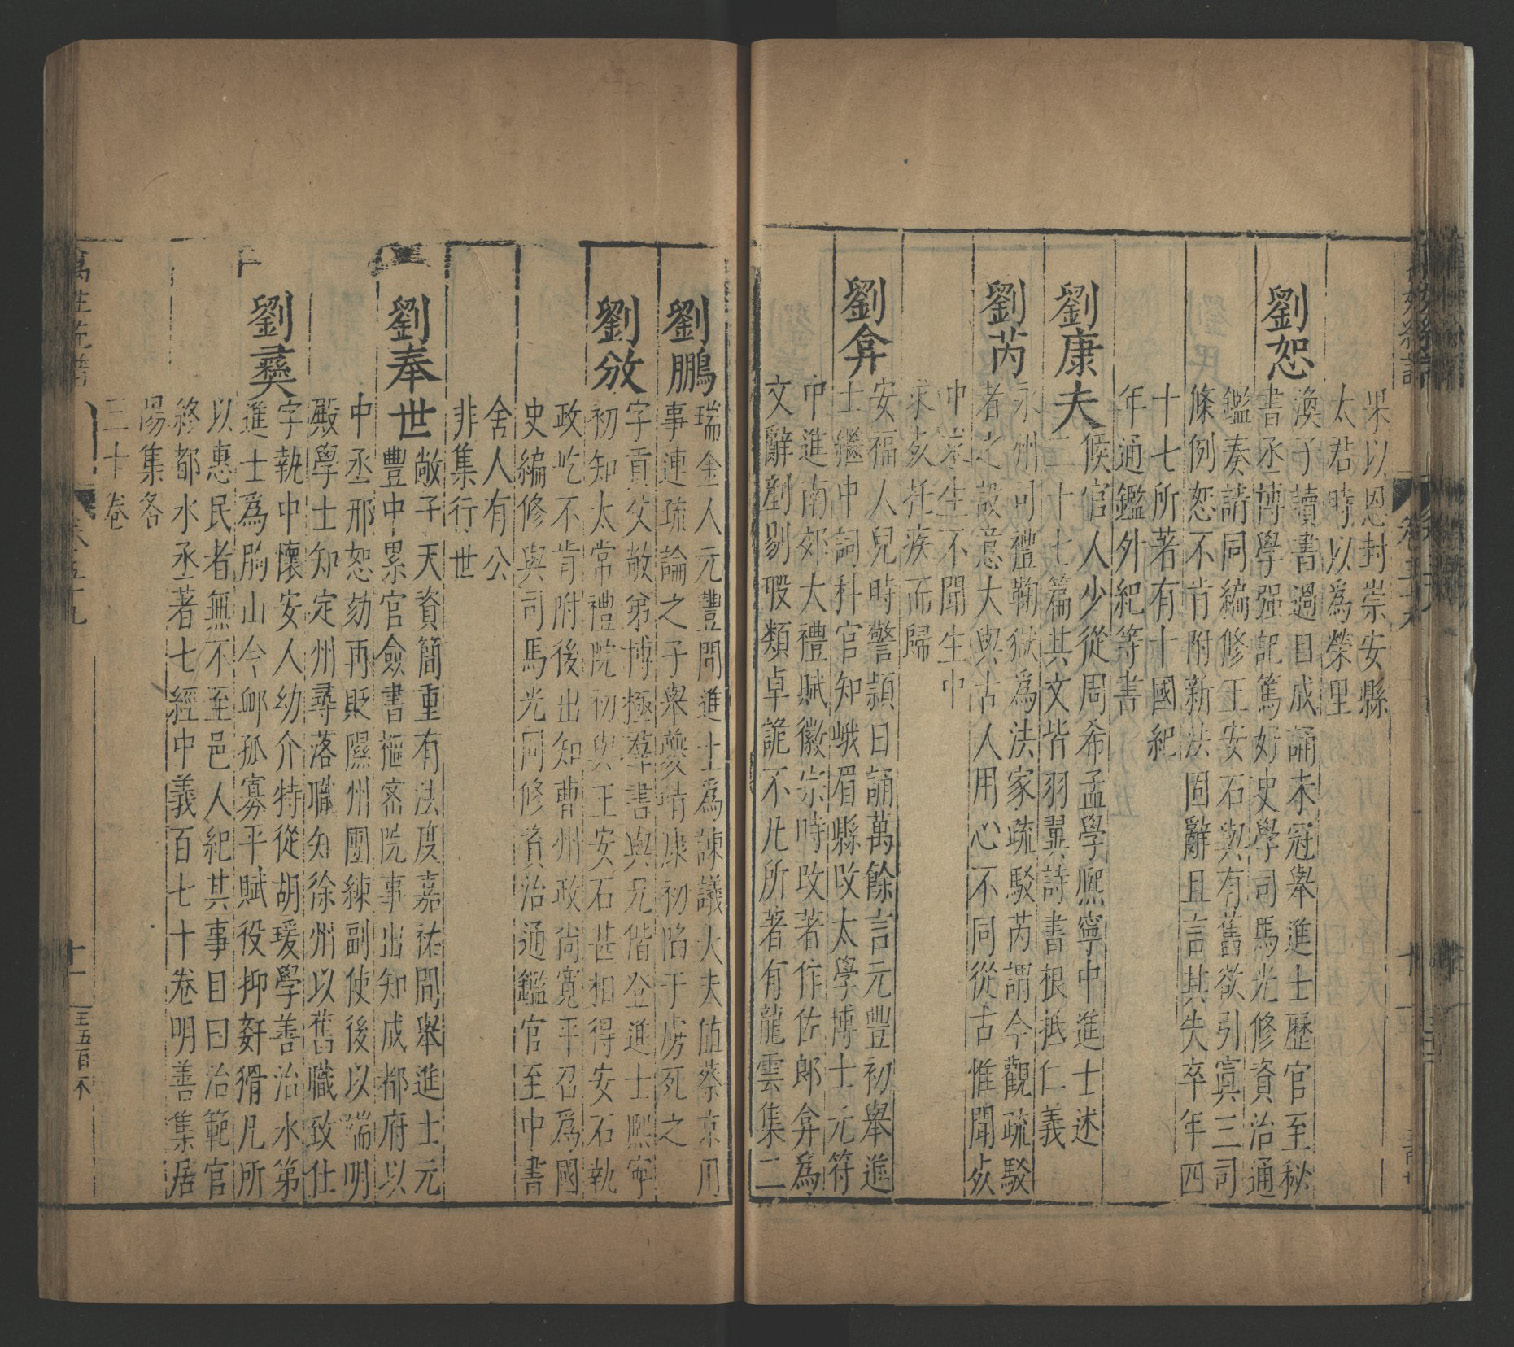 果以恩封崇安縣
太君時以為榮
劉恕
渙子讀書過目成誦未冠舉進士歷官至秘
書丞博學强記篤好史學司馬光修資治通
鑑奏請同編修王安石與有舊欲引寘三司
條例恕不肯附新法固辭且言其失卒年四
十七所著有十國紀
年通鑑外紀等書
劉康夫
候官人少從周希孟學熙寧中進士述
二十七篇其文皆羽翼詩書根抵仁義
劉芮
永州司禮鞫獄為法家疏駁芮謂今觀疏駁
者之設意大與古人用心不同從古惟聞
中求生不聞生中
求亥托疾而歸
劉弇
安福人兒時警頴日誦萬餘言元豐初舉進
士繼中詞科官知峨眉縣改太學博士元符
中進南郊大禮賦徽宗時改著作佐郎弇為
文辭剷剔瑕類卓詭不凡所著有龍雲集二
劉鵬
瑞金人元豐間進士為諫議大夫值蔡京用
事連疏論之子舉慶靖康初陷于虜死之
劉攽
字貢父敞弟博極羣書與兄偕登進士熙寧
初知太常禮院初與王安石甚相得安石執
政屹不肯附後出知曹州政尚寬平召為國
史編修與司馬光同修資治通鑑官至中書
舍人有公
非集行世
劉奉世
敞子天資簡重有法度嘉祐間舉進士元
豐中累官僉書樞密院事出知成都府以
中丞邢恕劾再貶隰州團練副使後以端明
殿學士知定州尋落職知徐州以舊職致仕
劉彞
字執中懷安人幼介特從胡瑗學善治水第
進士為朐山令邺孤寡平賦役抑姧猾凡所
以惠民者無不至邑人紀其事目曰治範官
終都水丞著七經中義百七十卷明善集居
陽集各
三十卷
萬姓統譜
卷五十九
十一